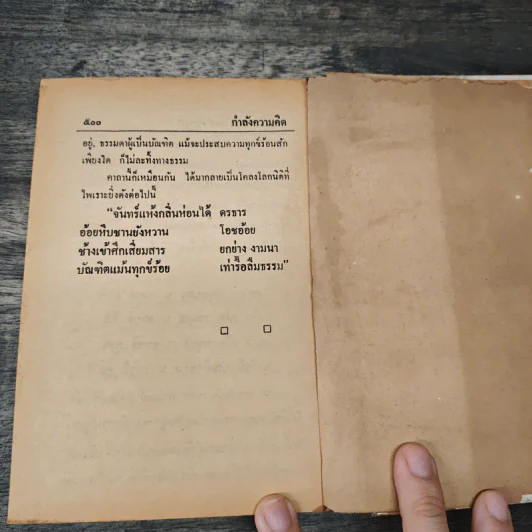 ๕๐๐ กำลังความคิด
อยู่. ธรรมดาผู้เป็นบัณฑิต แม้จะประสบความทุกข์ร้อนสัก
เพียงใด ก็ไม่ละทิ้งทางธรรม
คาถานี้ก็เหมือนกัน ได้มากลายเป็นโคลงโลกนิติที่
ไพเราะยิ่งดังต่อไปนี้
"จันทร์แห้งกลิ่นห่อนได้ ดรธาร
อ้อยหีบชานยังหวาน โอชอ้อย
ช้างเข้าศึกเสี่ยมสาร ยกย่าง งามนา
บัณฑิตแม้นทุกข์ร้อย เท่ารือลืมธรรม"